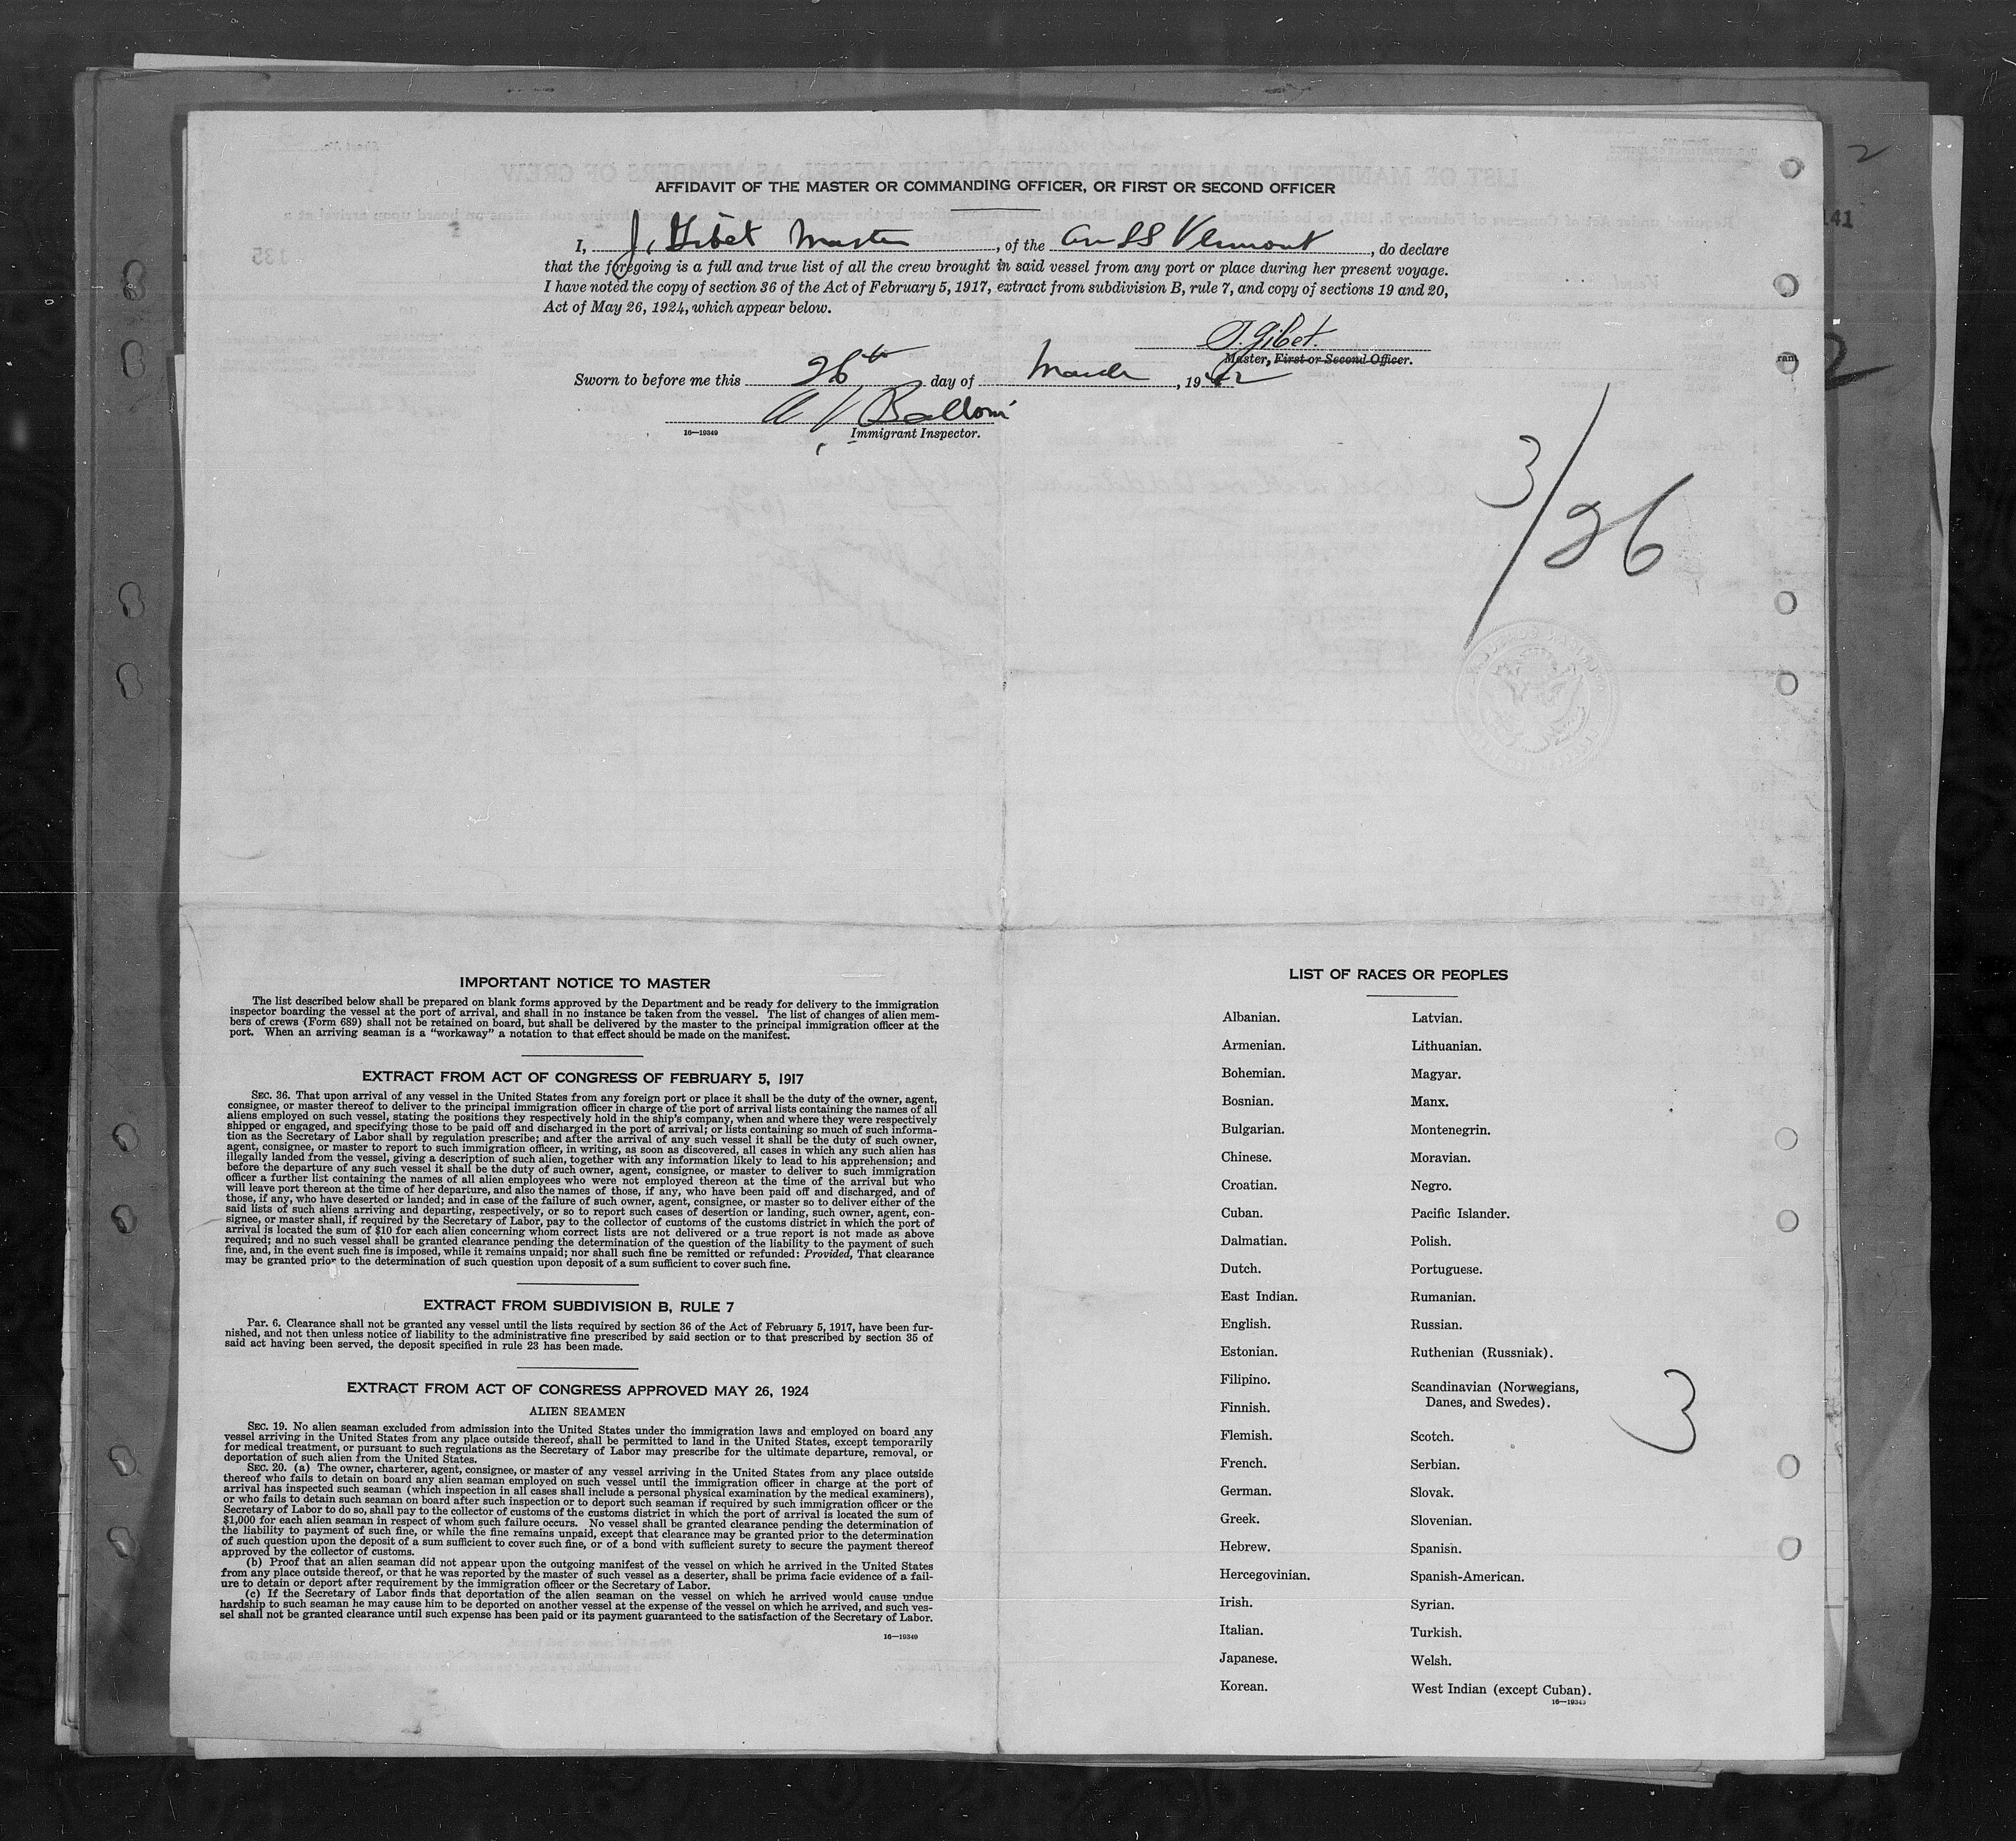 AFFIDAVIT OF THE MASTER OR COMMANDING OFFICER, OR FIRST OR SECOND OFFICER
I, J. Gibet Master, of the Am SS Vermont, do declare
that the foregoing is a full and true list of all the crew brought in said vessel from any port or place during her present voyage.
I have noted the copy of section 36 of the Act of February 5, 1917, extract from subdivision B, rule 7, and copy of sections 19 and 20,
Act of May 26, 1924, which appear below.
J. Gibet.
Master, First or Second Officer.
Sworn to before me this 26th day of March, 1942
A V Balloni
16—19349 Immigrant Inspector.
3/26
141
2
2
ran
135
IMPORTANT NOTICE TO MASTER
The list described below shall be prepared on blank forms approved by the Department and be ready for delivery to the immigration
inspector boarding the vessel at the port of arrival, and shall in no instance be taken from the vessel. The list of changes of alien mem-
bers of crews (Form 689) shall not be retained on board, but shall be delivered by the master to the principal immigration officer at the
port. When an arriving seaman is a "workaway" a notation to that effect should be made on the manifest.
EXTRACT FROM ACT OF CONGRESS OF FEBRUARY 5, 1917
SEC. 36. That upon arrival of any vessel in the United States from any foreign port or place it shall be the duty of the owner, agent,
consignee, or master thereof to deliver to the principal immigration officer in charge of the port of arrival lists containing the names of all
aliens employed on such vessel, stating the positions they respectively hold in the ship's company, when and where they were respectively
shipped or engaged, and specifying those to be paid off and discharged in the port of arrival; or lists containing so much of such informa-
tion as the Secretary of Labor shall by regulation prescribe; and after the arrival of any such vessel it shall be the duty of such owner,
agent, consignee, or master to report to such immigration officer, in writing, as soon as discovered, all cases in which any such alien has
illegally landed from the vessel, giving a description of such alien, together with any information likely to lead to his apprehension; and
before the departure of any such vessel it shall be the duty of such owner, agent, consignee, or master to deliver to such immigration
officer a further list containing the names of all alien employees who were not employed thereon at the time of the arrival but who
will leave port thereon at the time of her departure, and also the names of those, if any, who have been paid off and discharged, and of
those, if any, who have deserted or landed; and in case of the failure of such owner, agent, consignee, or master so to deliver either of the
said lists of such aliens arriving and departing, respectively, or so to report such cases of desertion or landing, such owner, agent, con-
signee, or master shall, if required by the Secretary of Labor, pay to the collector of customs of the customs district in which the port of
arrival is located the sum of $10 for each alien concerning whom correct lists are not delivered or a true report is not made as above
required; and no such vessel shall be granted clearance pending the determination of the question of the liability to the payment of such
fine, and, in the event such fine is imposed, while it remains unpaid; nor shall such fine be remitted or refunded: Provided, That clearance
may be granted prior to the determination of such question upon deposit of a sum sufficient to cover such fine.
EXTRACT FROM SUBDIVISION B, RULE 7
Par. 6. Clearance shall not be granted any vessel until the lists required by section 36 of the Act of February 5, 1917, have been fur-
nished, and not then unless notice of liability to the administrative fine prescribed by said section or to that prescribed by section 35 of
said act having been served, the deposit specified in rule 23 has been made.
EXTRACT FROM ACT OF CONGRESS APPROVED MAY 26, 1924
ALIEN SEAMEN
SEC. 19. No alien seaman excluded from admission into the United States under the immigration laws and employed on board any
vessel arriving in the United States from any place outside thereof, shall be permitted to land in the United States, except temporarily
for medical treatment, or pursuant to such regulations as the Secretary of Labor may prescribe for the ultimate departure, removal, or
deportation of such alien from the United States.
SEC. 20. (a) The owner, charterer, agent, consignee, or master of any vessel arriving in the United States from any place outside
thereof who fails to detain on board any alien seaman employed on such vessel until the immigration officer in charge at the port of
arrival has inspected such seaman (which inspection in all cases shall include a personal physical examination by the medical examiners),
or who fails to detain such seaman on board after such inspection or to deport such seaman if required by such immigration officer or the
Secretary of Labor to do so, shall pay to the collector of customs of the customs district in which the port of arrival is located the sum of
$1,000 for each alien seaman in respect of whom such failure occurs. No vessel shall be granted clearance pending the determination of
the liability to payment of such fine, or while the fine remains unpaid, except that clearance may be granted prior to the determination
of such question upon the deposit of a sum sufficient to cover such fine, or of a bond with sufficient surety to secure the payment thereof
approved by the collector of customs.
(b) Proof that an alien seaman did not appear upon the outgoing manifest of the vessel on which he arrived in the United States
from any place outside thereof, or that he was reported by the master of such vessel as a deserter, shall be prima facie evidence of a fail-
ure to detain or deport after requirement by the immigration officer or the Secretary of Labor.
(c) If the Secretary of Labor finds that deportation of the alien seaman on the vessel on which he arrived would cause undue
hardship to such seaman he may cause him to be deported on another vessel at the expense of the vessel on which he arrived, and such ves-
sel shall not be granted clearance until such expense has been paid or its payment guaranteed to the satisfaction of the Secretary of Labor.
16—19349
LIST OF RACES OR PEOPLES
Albanian.
Armenian.
Bohemian.
Bosnian.
Bulgarian.
Chinese.
Croatian.
Cuban.
Dalmatian.
Dutch.
East Indian.
English.
Estonian.
Filipino.
Finnish.
Flemish.
French.
German.
Greek.
Hebrew.
Hercegovinian.
Irish.
Italian.
Japanese.
Korean.
Latvian.
Lithuanian.
Magyar.
Manx.
Montenegrin.
Moravian.
Negro.
Pacific Islander.
Polish.
Portuguese.
Rumanian.
Russian.
Ruthenian (Russniak).
Scandinavian (Norwegians,
Danes, and Swedes).
Scotch.
Serbian.
Slovak.
Slovenian.
Spanish.
Spanish-American.
Syrian.
Turkish.
Welsh.
West Indian (except Cuban).
16—19349
3